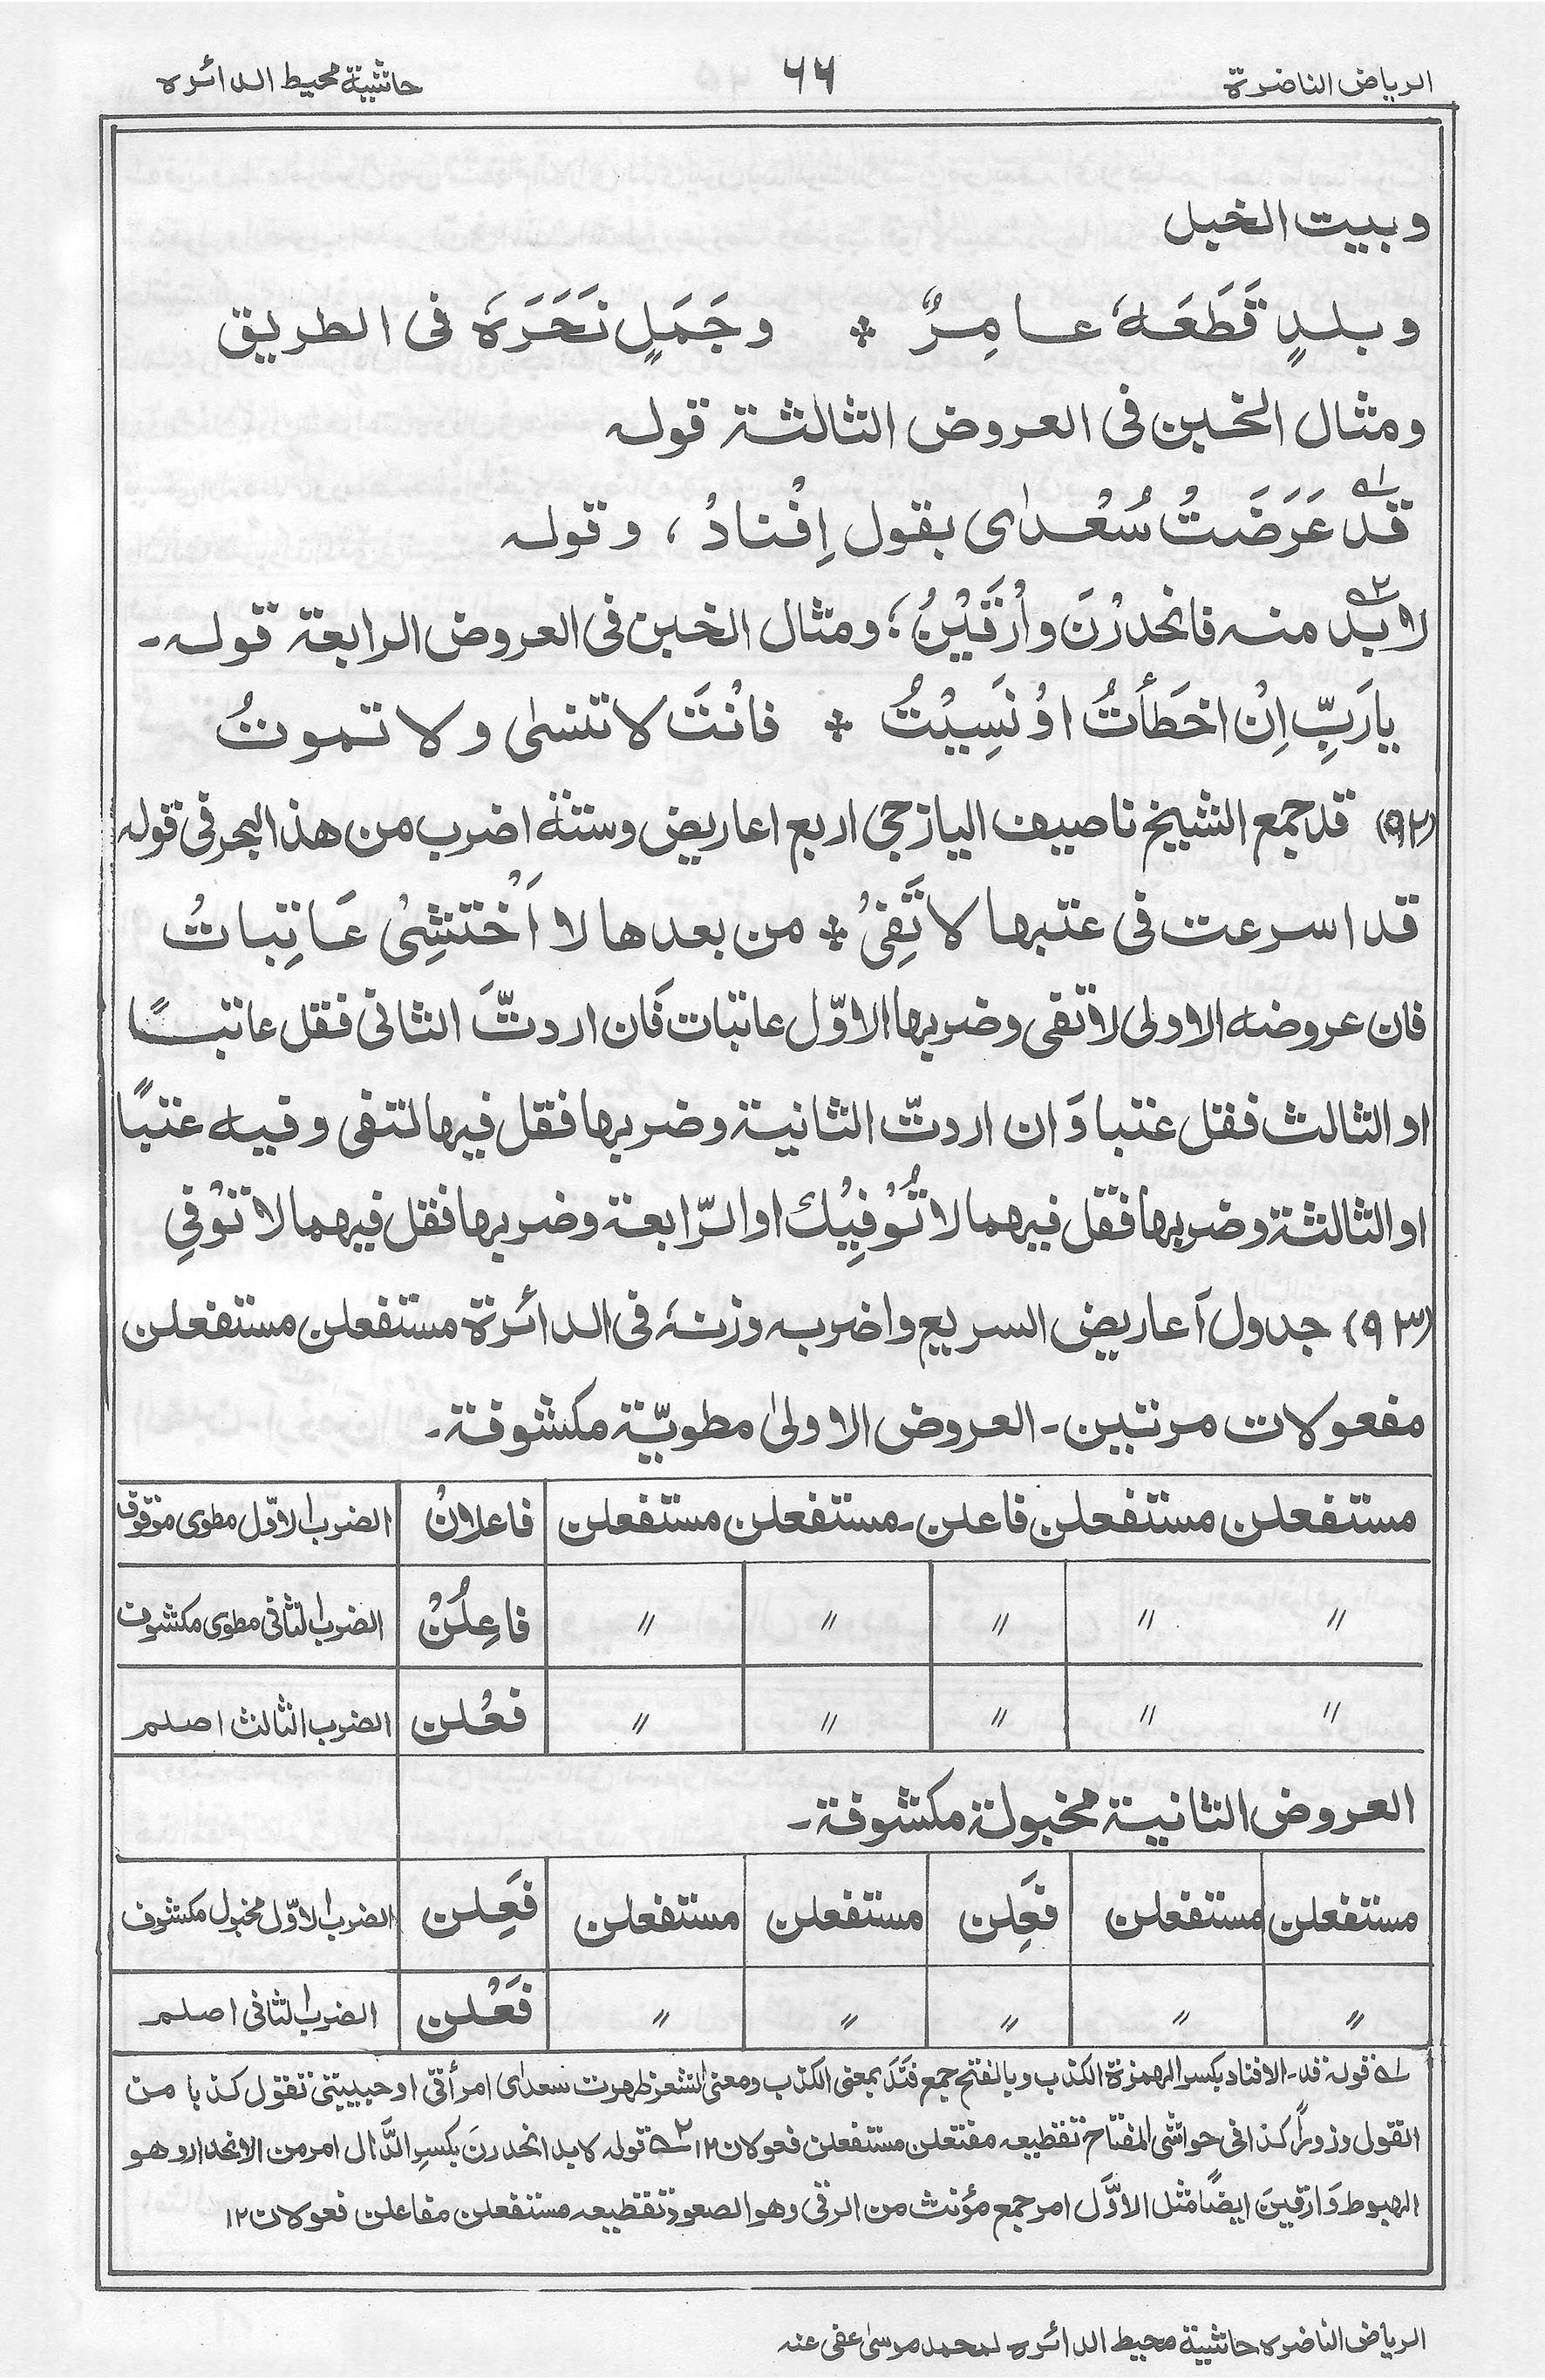 الرياض الناضرة ٦٦ حاشية محيط الدائره
وبيت الخبل
وبلدٍ قَطَعَهُ عامِرٌ * وجَمَلٍ نَحَرَهُ فى الطريق
ومثال الخبن فى العروض الثالثة قوله
قد۱ عَرَضَتْ سُعْدٰى بقول اِفْنادْ ، وقوله
لا بدّ۲ منه فانحدرْنَ وارْقَيْنْ ؛ ومثال الخبن فى العروض الرابعة قوله۔
يارَبِّ اِنْ اخطَأتُ اوْ نَسِيْتُ * فانْتَ لا تنسٰى ولا تموتُ
(٩٢) قد جمع الشيخ ناصيف اليازجى اربع اعاريض وستة اضرب من هذا البحر فى قوله
قد اسرعت فى عتبها لا تَفِىْ * من بعدها لا اَخْتشِىْ عَاتِباتْ
فان عروضه الاولى لا تفى وضربها الاوّل عاتبات فَان اردتَّ الثانى فقل عاتبًا
او الثالث فقل عتبا وَان اردتّ الثانية وضربها فقل فيها لتفى وفيه عتبًا
او الثالثة وضربها فقل فيهما لا تُوْفِيْك او الرّابعة وضربها فقل فيهما لا تُوْفِىْ
(٩٣) جدول اَعاريض السريع واضربه وزنهٗ فى الدائرة مستفعلن مستفعلن
مفعولات مرتين۔ العروض الاولىٰ مطويّة مكشوفة۔
مستفعلن مستفعلن فاعلن۔ مستفعلن مستفعلن فاعلانْ الضرب الاوّل مطوى موقوف
〃 〃 〃 〃 〃 فاعِلُنْ الضرب الثانى مطوى مكشوف
〃 〃 〃 〃 〃 فعْلن الضرب الثالث اصلم
العروض الثانية مخبولة مكشوفة۔
مستفعلن مستفعلن فَعِلن مستفعلن مستفعلن فَعِلن الضرب الاوّل مخبول مكشوف
〃 〃 〃 〃 〃 فَعْلن الضرب الثانى اصلم
۱ قوله قد۔ الافناد بكسر الهمزة الكذب وبالفتح جمع فَنَدَ بمعنى الكذب ومعنى الشعر ظهرت سعدٰى امرأتى او حبيبتى تقول كذبا من
القول وزوراً كذا فى حواشى المفتاح تقطيعه مفتعلن مستفعلن فعولان ١٢ ۲ قوله لابد انحدرنَ بكسرِ الدَّال امر من الانحدار وهو
الهبوط وَارقينَ ايضًا مثل الاوَّل امر جمع مؤنث من الرقى وهو الصعود تقطيعه مستفعلن مفاعلن فعولان ١٢
الرياض الناضره حاشية محيط الدائره لمحمد موسىٰ عفى عنه